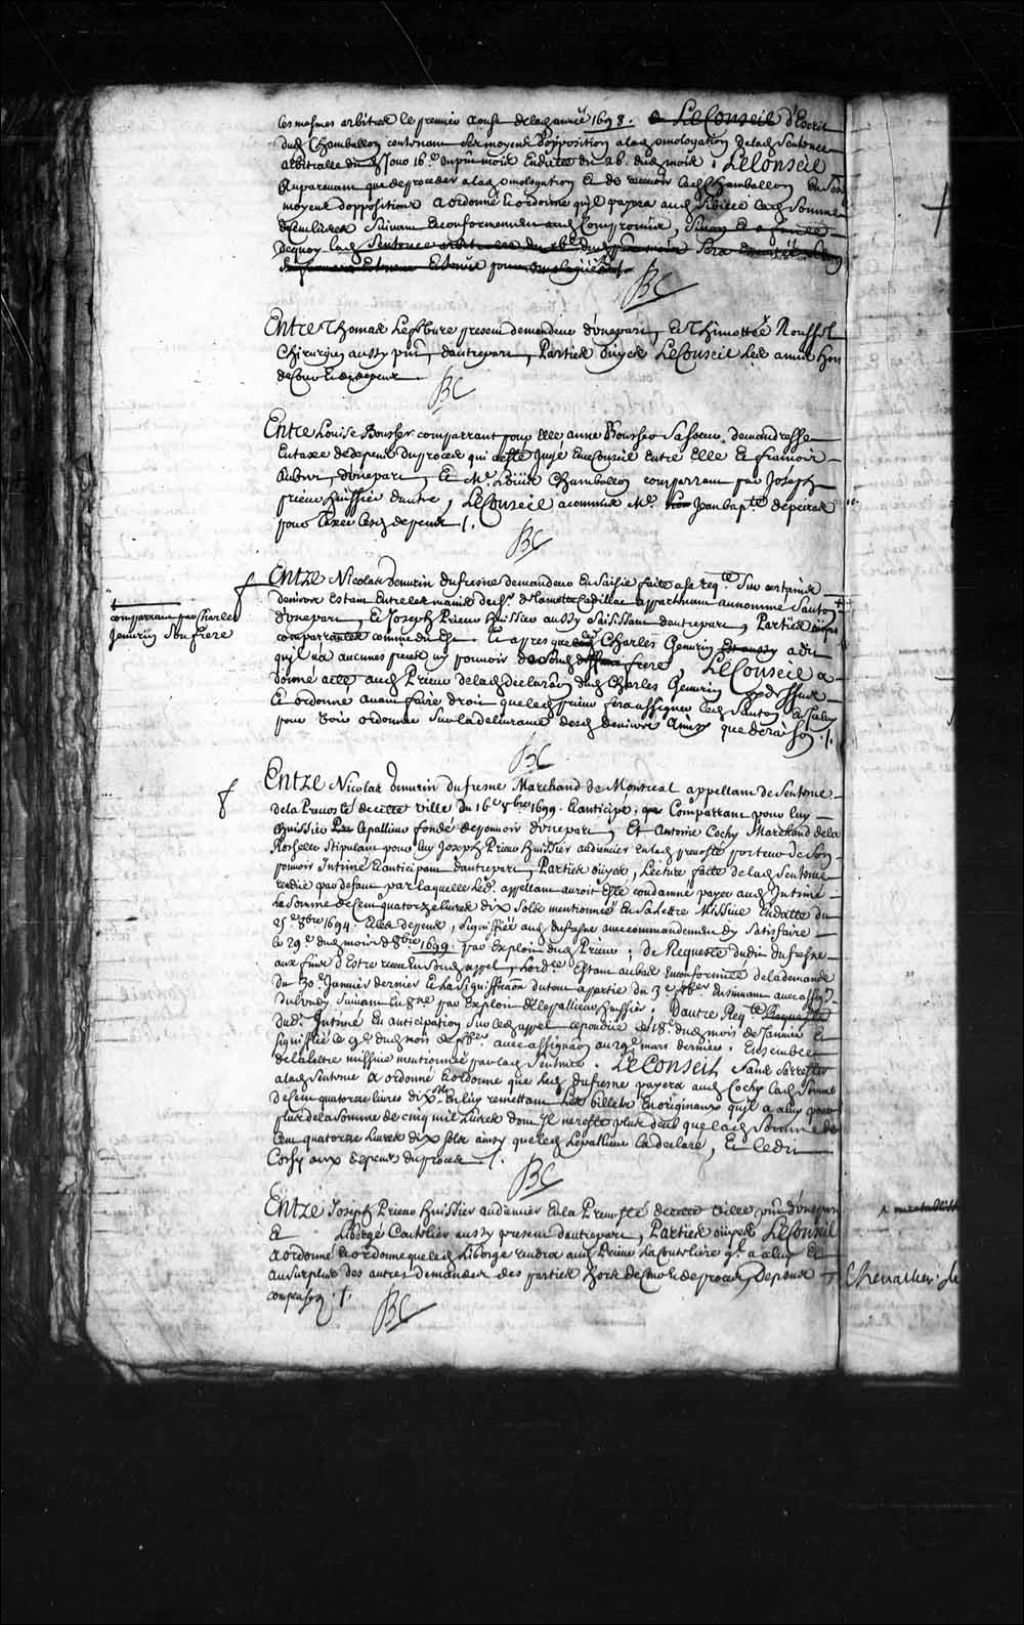 les mesmes arbitres le premier aoust de lad année 1698. LeConseil d'Escrit
dud Chamballon contenant ses moyens d'opposition a lad omologation de lad Sentence
arbitralle dud jour 16.e dud mois Endatte du 26. dud mois, LeConseil
Auparavant que de proceder a lad omologation Et de recevoir led Chamballon En ses
moyens d'opposition a ordonné Et ordonne qu'jl payera aud Sibille lad Somme
de Cent livres Suivant Et conformement aud Compromis,
dequoy lad Sentence arbitralle
BC
Entre Thomas Lefebure present demandeur d'une part, Et Thimottée Roussel
Chirurgien aussy pnt, d'autre part, Parties oüyes LeConseil Les a mis hors
de Cour Et de depens
BC
Entre Louise Rousser comparrant pour Elle anne Rousser Sa Soeur, demandresse
En taxe de depens du proces qui a esté Jugé En ce Conseil Entre Elle Et francois
d'une part, Et Me. Loüis Chamballon comparrant par Joseph
prieur huissier d'autre, LeConseil a commis Me. Jean bap.te depeiras
pour Taxer lesd depens ./.
BC
comparrant par Charles
Jenurin Son frere
Entre Nicolas Jenurin dufresne demandeur En Saisie faite a sa req.te Sur certains
deniers Estant Entre les mains de Sr. de Lamotte Cadillac appartenant au nommé Santon
d'une part, Et Joseph Prieur Huissier aussy Saisissant d'autre part, Parties oüyes
comparrantes comme dit Est Et apres que led Charles Genurin a dit
qu'jl n'a aucunes pieces ny pouvoir de Sond frere, LeConseil a
donné acte aud Prieur de lad declaraon dud Charles Genurin
Et ordonné avant faire droit que led prieur fera assigner led Santon
pour voir ordonner Sur la delivrance desd deniers Ainsy que de raison ./.
BC
Entre Nicolas Jenurin dufresne Marchand de Montreal appellant de Sentence
de la Prevosté de cette ville du 16e 8bre 1699. Et anticipé, Comparrant pour luy
Huissier Lepallieur fondé de pouvoir d'une part, Et Antoine Cochy Marchand de la
Rochelle Stipulant pour luy Joseph Prieur Huissier audiencier En lad prevosté porteur de Son
pouvoir Intimé Et anticipant d'autre part, Parties oüyes, Lecture faite de lad Sentence
rendüe par defaut par laquelle led. appellant auroit Esté condamné payer aud Intimé
La Somme de Cent quatorze livres dix Sols mentionnée En Sa Lettre Missive Endatte du
25e 1694. Et les depens, Signiffiée aud dufresne avec commandement d'y Satisfaire
le 29.e dud mois d'8bre 1699. par Exploit dud Prieur; de Requeste dudit dufresne
aux fins d'Estre receu En Sond appel, Lord.ce Estant au bas En conformité de la demande
du 30.e Janvier dernier Et la Signification du tout a partie du 3.e
par Exploit de Lepallieur huissier; D'autre Req.te
dud. Intimé En anticipation Sur led appel repondüe le 18.e dud mois de Janvier Et
Signiffiée le 9.e dud mois de avec assignaon au 29.e mars dernier; Ensemble
de la lettre missive mentionnée par lad Sentence. LeConseil Sans S'arrester
a lad Sentence a ordonné Et ordonne que led dufresne payera aud Cochy lad Somme
de Cent quatorze livres dix Sols En luy remettant Les billets En originaux qu'jl a a luy pour
plus de la Somme de cinq mil livres dont Jl ne reste plus deub que lad Somme de
Cent quatorze Livres dix Sols ainsy que led Lepallieur L'a declaré, Et ledit
Cochy aux depens du proces ./.
BC
Entre Joseph Prieur Huissier audiencier En la Prevosté de cette ville pnt d'une part
Et Liborgé Coutelier aussy present d'autre part, Parties oüyes LeConseil
a ordonné Et ordonne que led Liborgé rendra aud Prieur La Coutoliere qu'jl a a luy Et
au Surplus des autres demandes des parties hors de Cour de proces, Depens
compensez ./.
BC
Chevallier